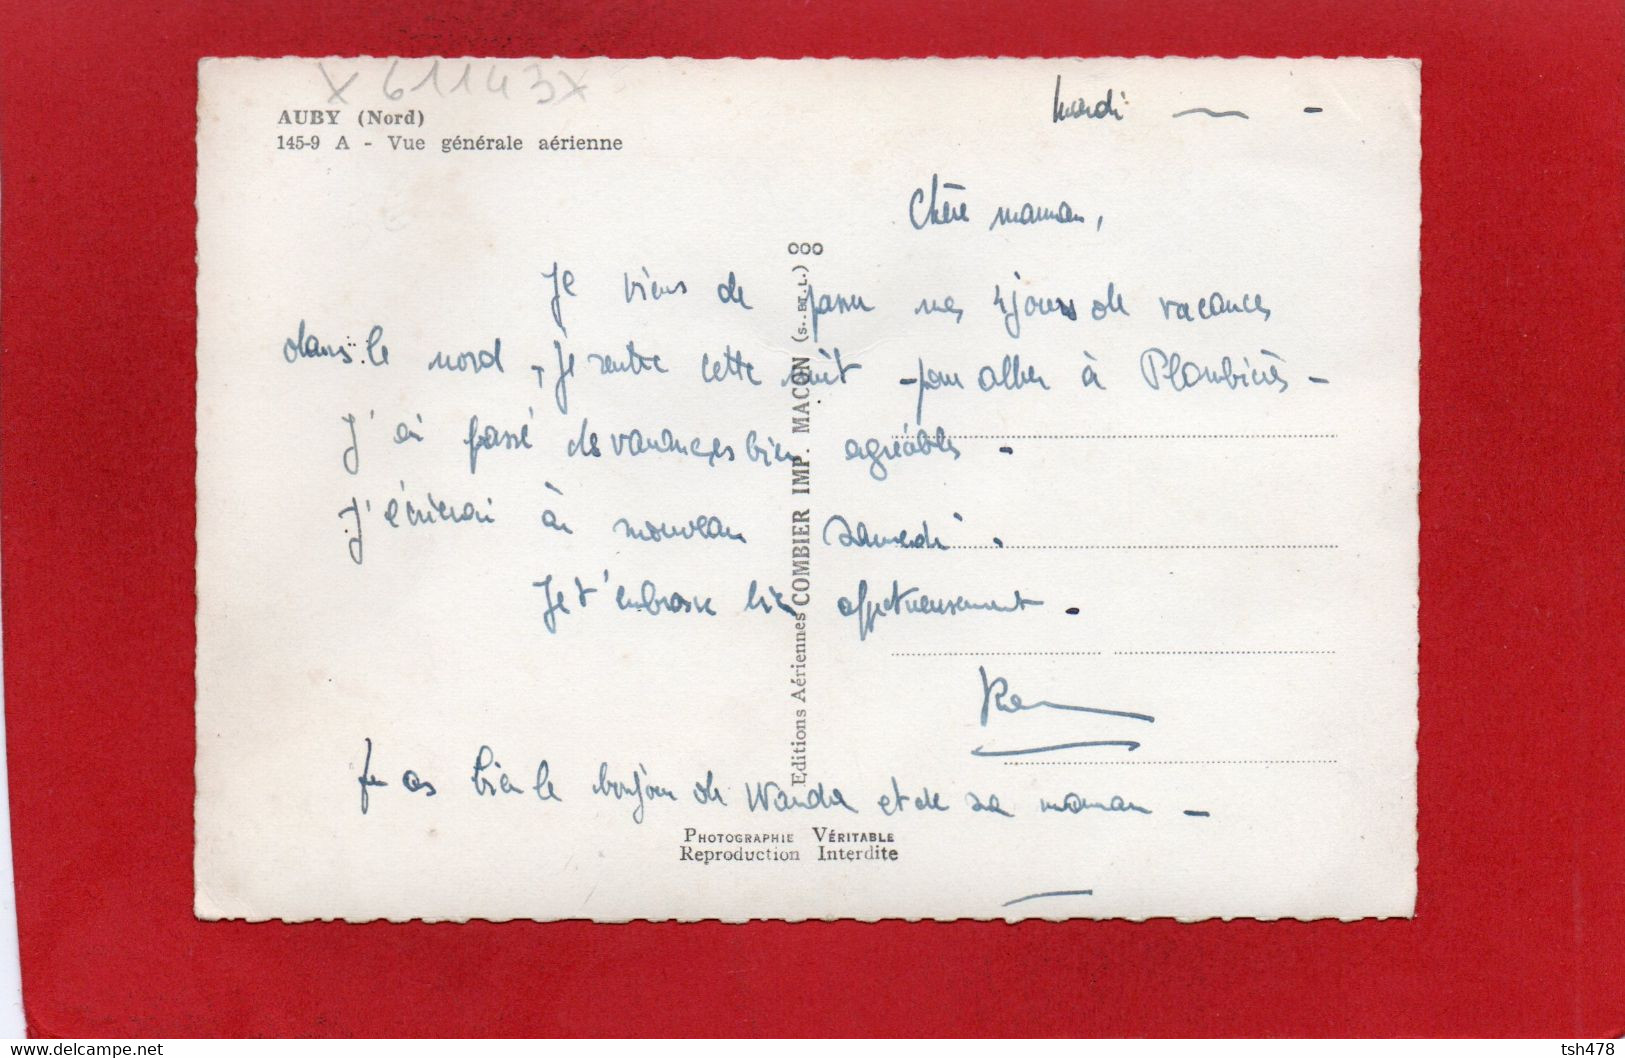 x 61143x
AUBY (Nord)
145-9 A - Vue générale aérienne
mardi
Chère maman,
Je viens de passer mes 4 jours de vacances
dans le nord, je rentre cette nuit - pour aller à Plombières -
J'ai passé des vacances bien agréables -
J'écrirai à nouveau samedi.
Je t'embrasse bien affectueusement -
Tu as bien le bonjour de Wanda et de sa maman -
Editions Aériennes COMBIER IMP. MACON (S.-et-L.) 000
PHOTOGRAPHIE VÉRITABLE
Reproduction Interdite
tsh478